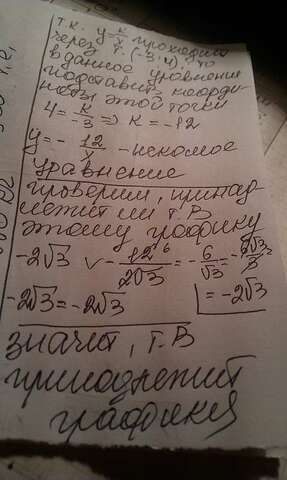 т.к. y=k/x проходит
через т. (-3;4), то
в данное уравнение
подставить коорди-
наты этой точки
4 = k/-3 => k = -12
y = - 12/x - искомое
уравнение
проверим, принад-
лежит ли т. В
этому графику
-2√3 v - 12 6/2√3 = - 6/√3 = - 6√3/3
-2√3 = -2√3 = -2√3
значит, т. В
принадлежит
графику